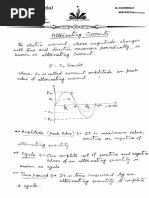 Alternating Current
The electric current, whose magnitude changes
with time and direction reverses periodically, is
known as alternating current.
I = I₀ Sin ωt
where I₀ is called current amplitude or peak
value of alternating current.
→ Amplitude (Peak Value) :- It is maximum value,
positive or negative of
alternating quantity is
→ Cycle :- One complete set of positive and negative
values of an alternating quantity
is known as cycle.
→ Time period :- It is time required by an
alternating quantity to complete
a cycle.